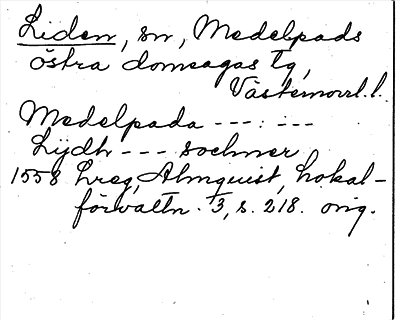 Liden, sn, Medelpads
östra domsagas tg,
Västernorrl. l.
Medelpada --- : ---
Lijdh --- sochner
1558 Lreg, Almquist, Lokal-
förvaltn. 3, s. 218. orig.